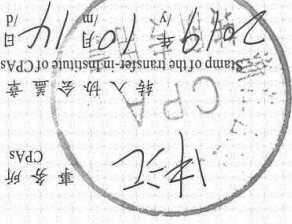 事务所
CPAs
CPA
转入协会盖章
Stamp of the transfer-in Institute of CPAs
2019年10月14日
/y /m /d